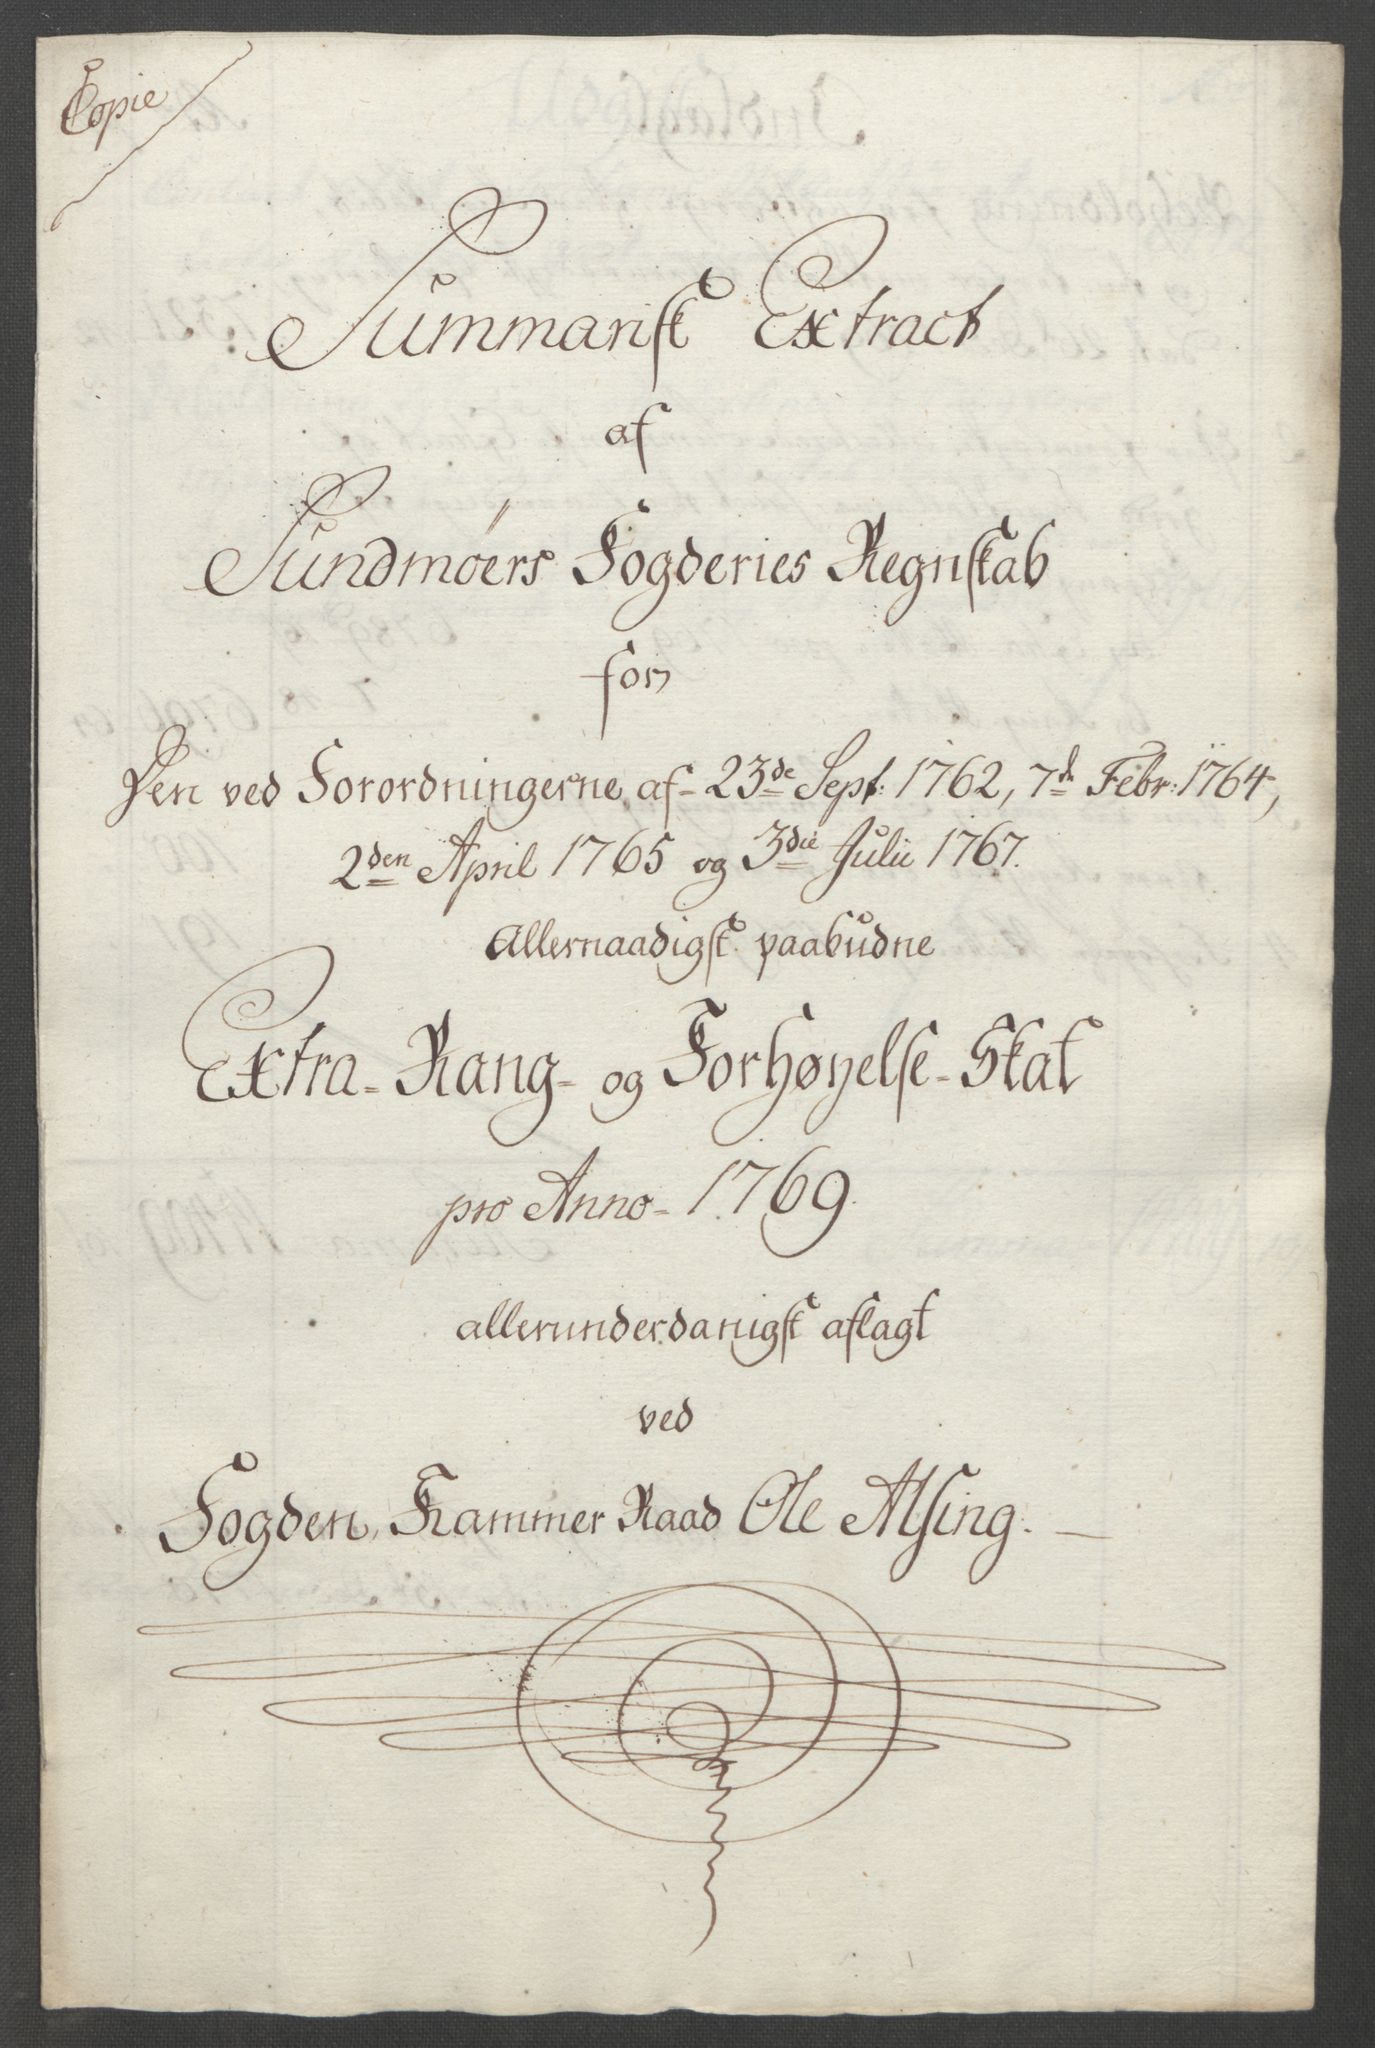 Copie
Summarisk Extract
af
Sundmöers Fogderies Regnskab
for
Den ved Forordningerne af 23de Sept: 1762, 7de Febr: 1764,
2den April 1765 og 3die Julii 1767.
Allernaadigst paabudne
Extra- Rang- og Forhøyelse- Skat
pro Anno- 1769.
allerunderdanigst aflagt
ved
Fogden, Kammer Raad Ole Alsing.